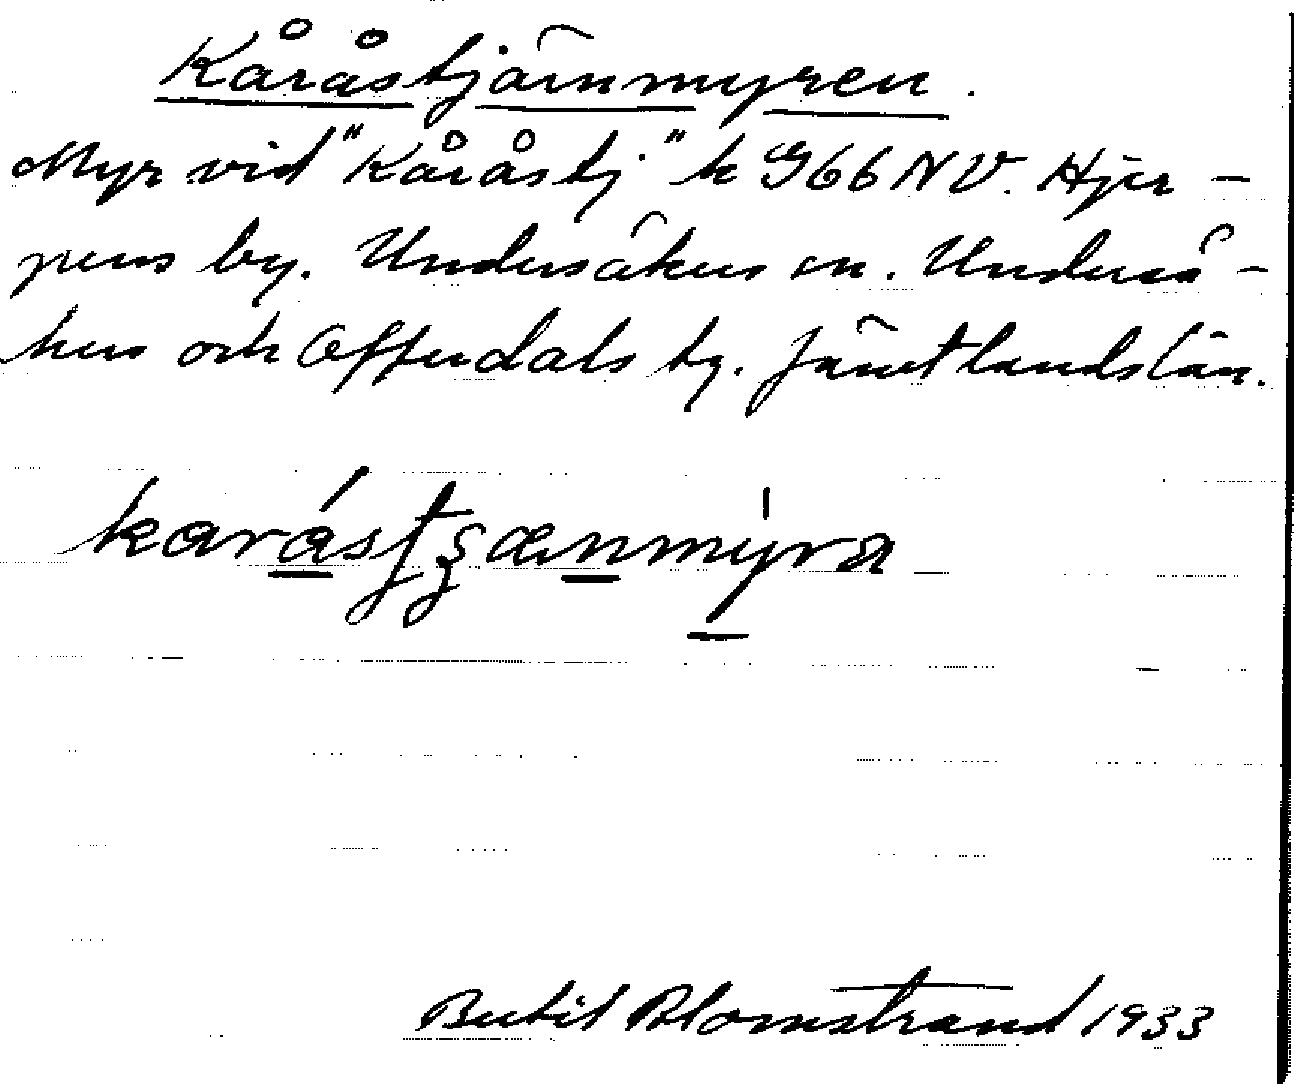 Kåråstjärnmyren.
Myr vid "Kåråstj" k G66 NV. Hjer-
pens by. Undersåkers sn. Underså-
kers och Offerdals tg. Jämtlands län.
Bertil Blomstrand 1933